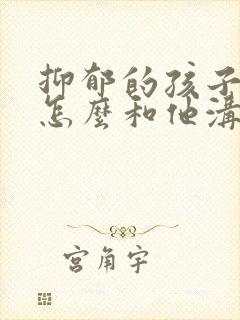 抑郁的孩子
怎麼和他溝
宮角宇